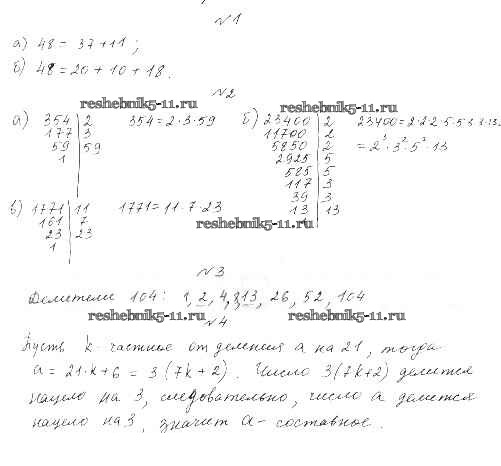 №1
а) 48 = 37+11;
б) 48 = 20 + 10 + 18.
№2
reshebnik5-11.ru reshebnik5-11.ru
а) 354 | 2 354 = 2·3·59 б) 23400 | 2 23400 = 2·2·2·5·5·3·3·13
177 | 3 11700 | 2 = 2³·3²·5²·13
59 | 59 5850 | 2
1 2925 | 5
585 | 5
117 | 3
39 | 3
в) 1771 | 11 1771 = 11·7·23 13 | 13
161 | 7 1
reshebnik5-11.ru
23 | 23
1
№3
Делители 104: 1, 2, 4, 8, 13, 26, 52, 104
reshebnik5-11.ru reshebnik5-11.ru
№4
Пусть k частное от деления a на 21, тогда
a = 21·k + 6 = 3(7k + 2). Число 3(7k+2) делится
нацело на 3, следовательно, число a делится
нацело на 3, значит a - составное.